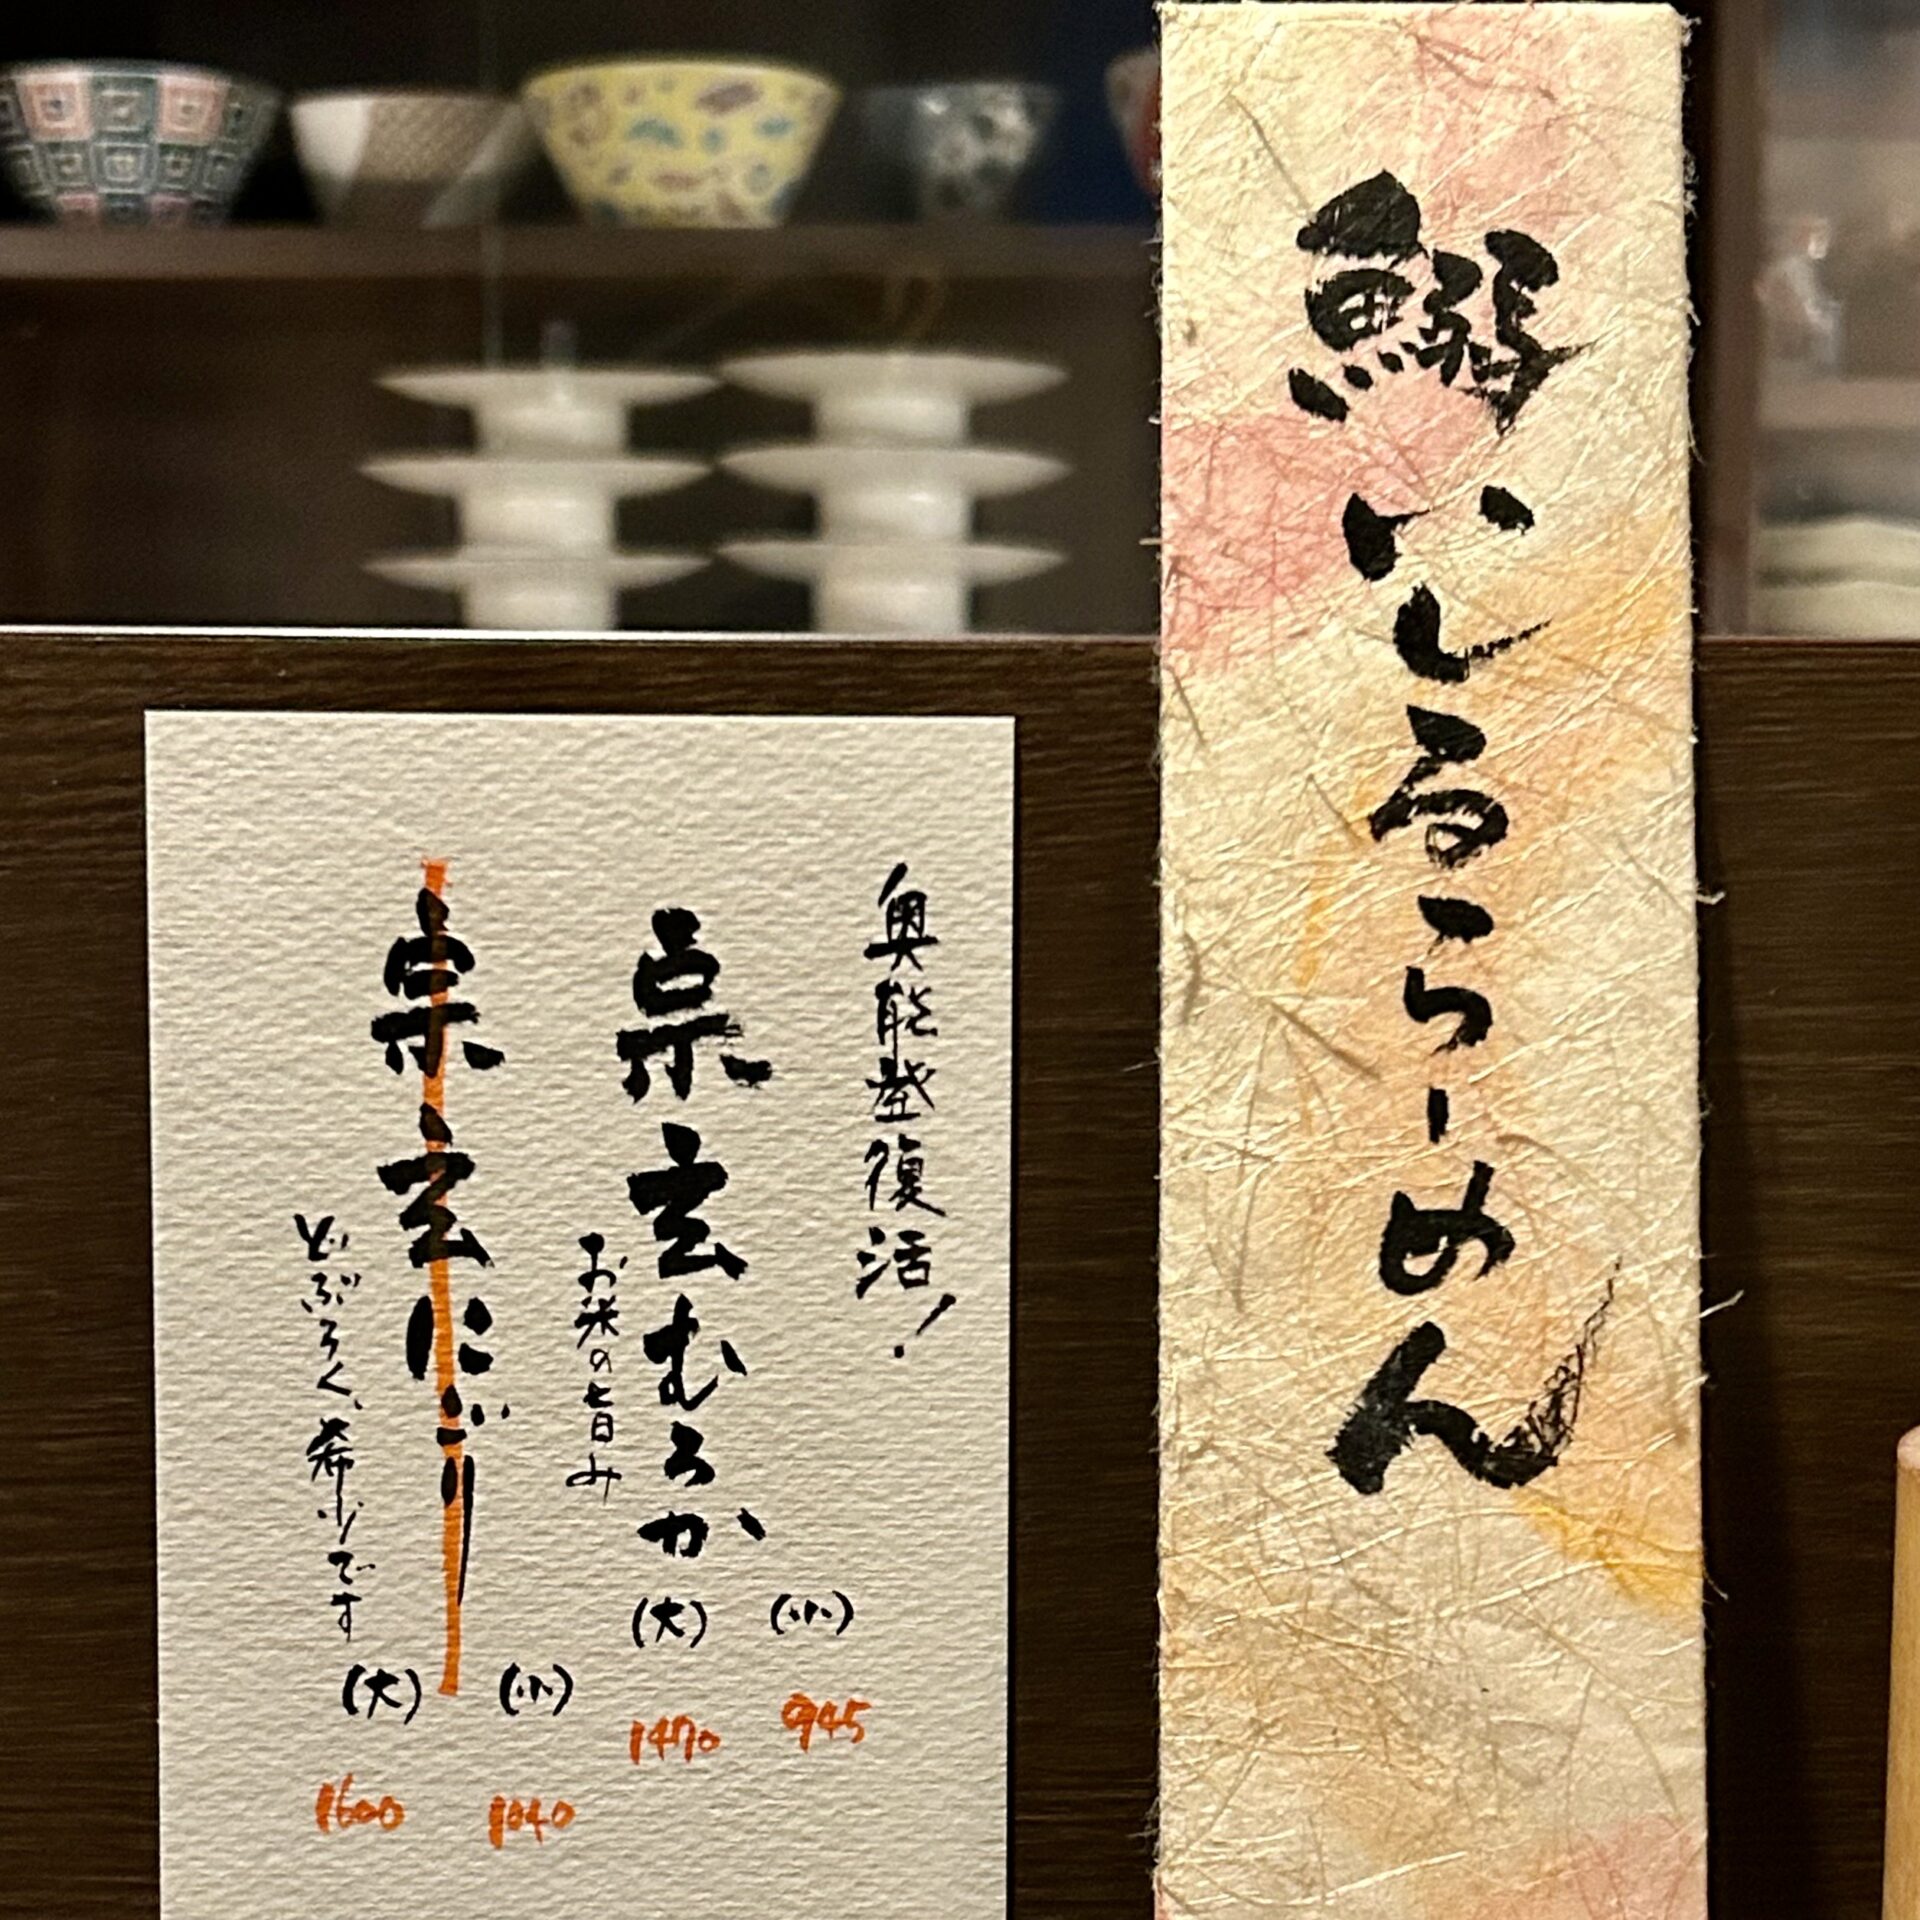 鰯いしるらーめん
奥能登復活!
宗玄むろか
お米の旨み
(大) (小)
1470 945
宗玄にごり
どぶろく、希少です
(大) (小)
1600 1040